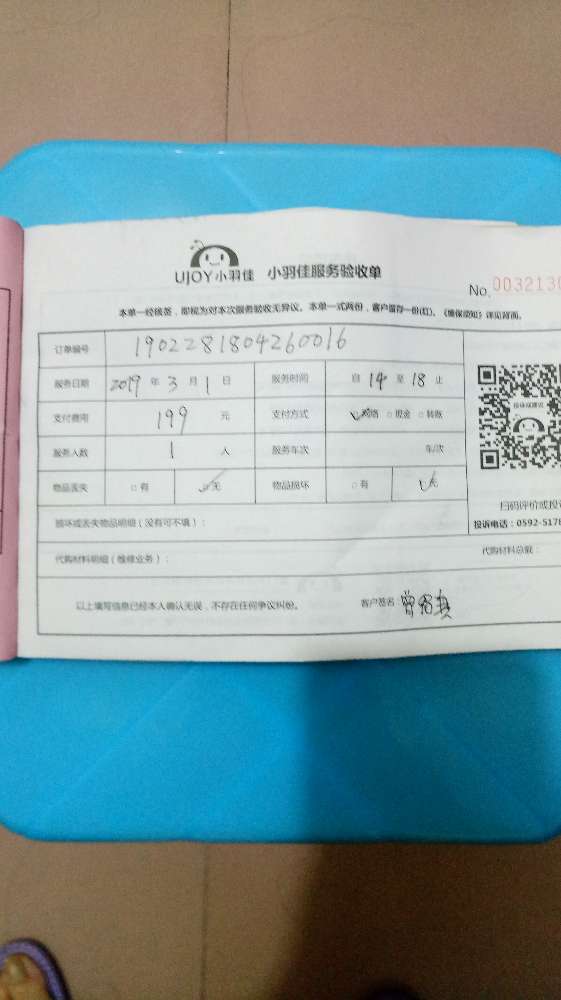 UJOY小羽佳 小羽佳服务验收单
No. 0032130
本单一经镜签，即视为对本次服务验收无异议。本单一式两份，客户留存一份(红)。《维保须知》详见背面。
订单编号 1902281804260016
服务日期 2019 年 3 月 1 日 服务时间 自 14 至 18 止
支付费用 199 元 支付方式 网络 □ 现金 □ 转账
服务人数 1 人 服务车次 车/次
物品丢失 □ 有 □ 无 物品损坏 □ 有 无
扫码评价或投诉
损坏或丢失物品明细（没有可不填）：
投诉电话：0592-5178
代购材料明细（维修业务）： 代购材料总额：
以上填写信息已经本人确认无误，不存在任何争议纠纷。 客户签名